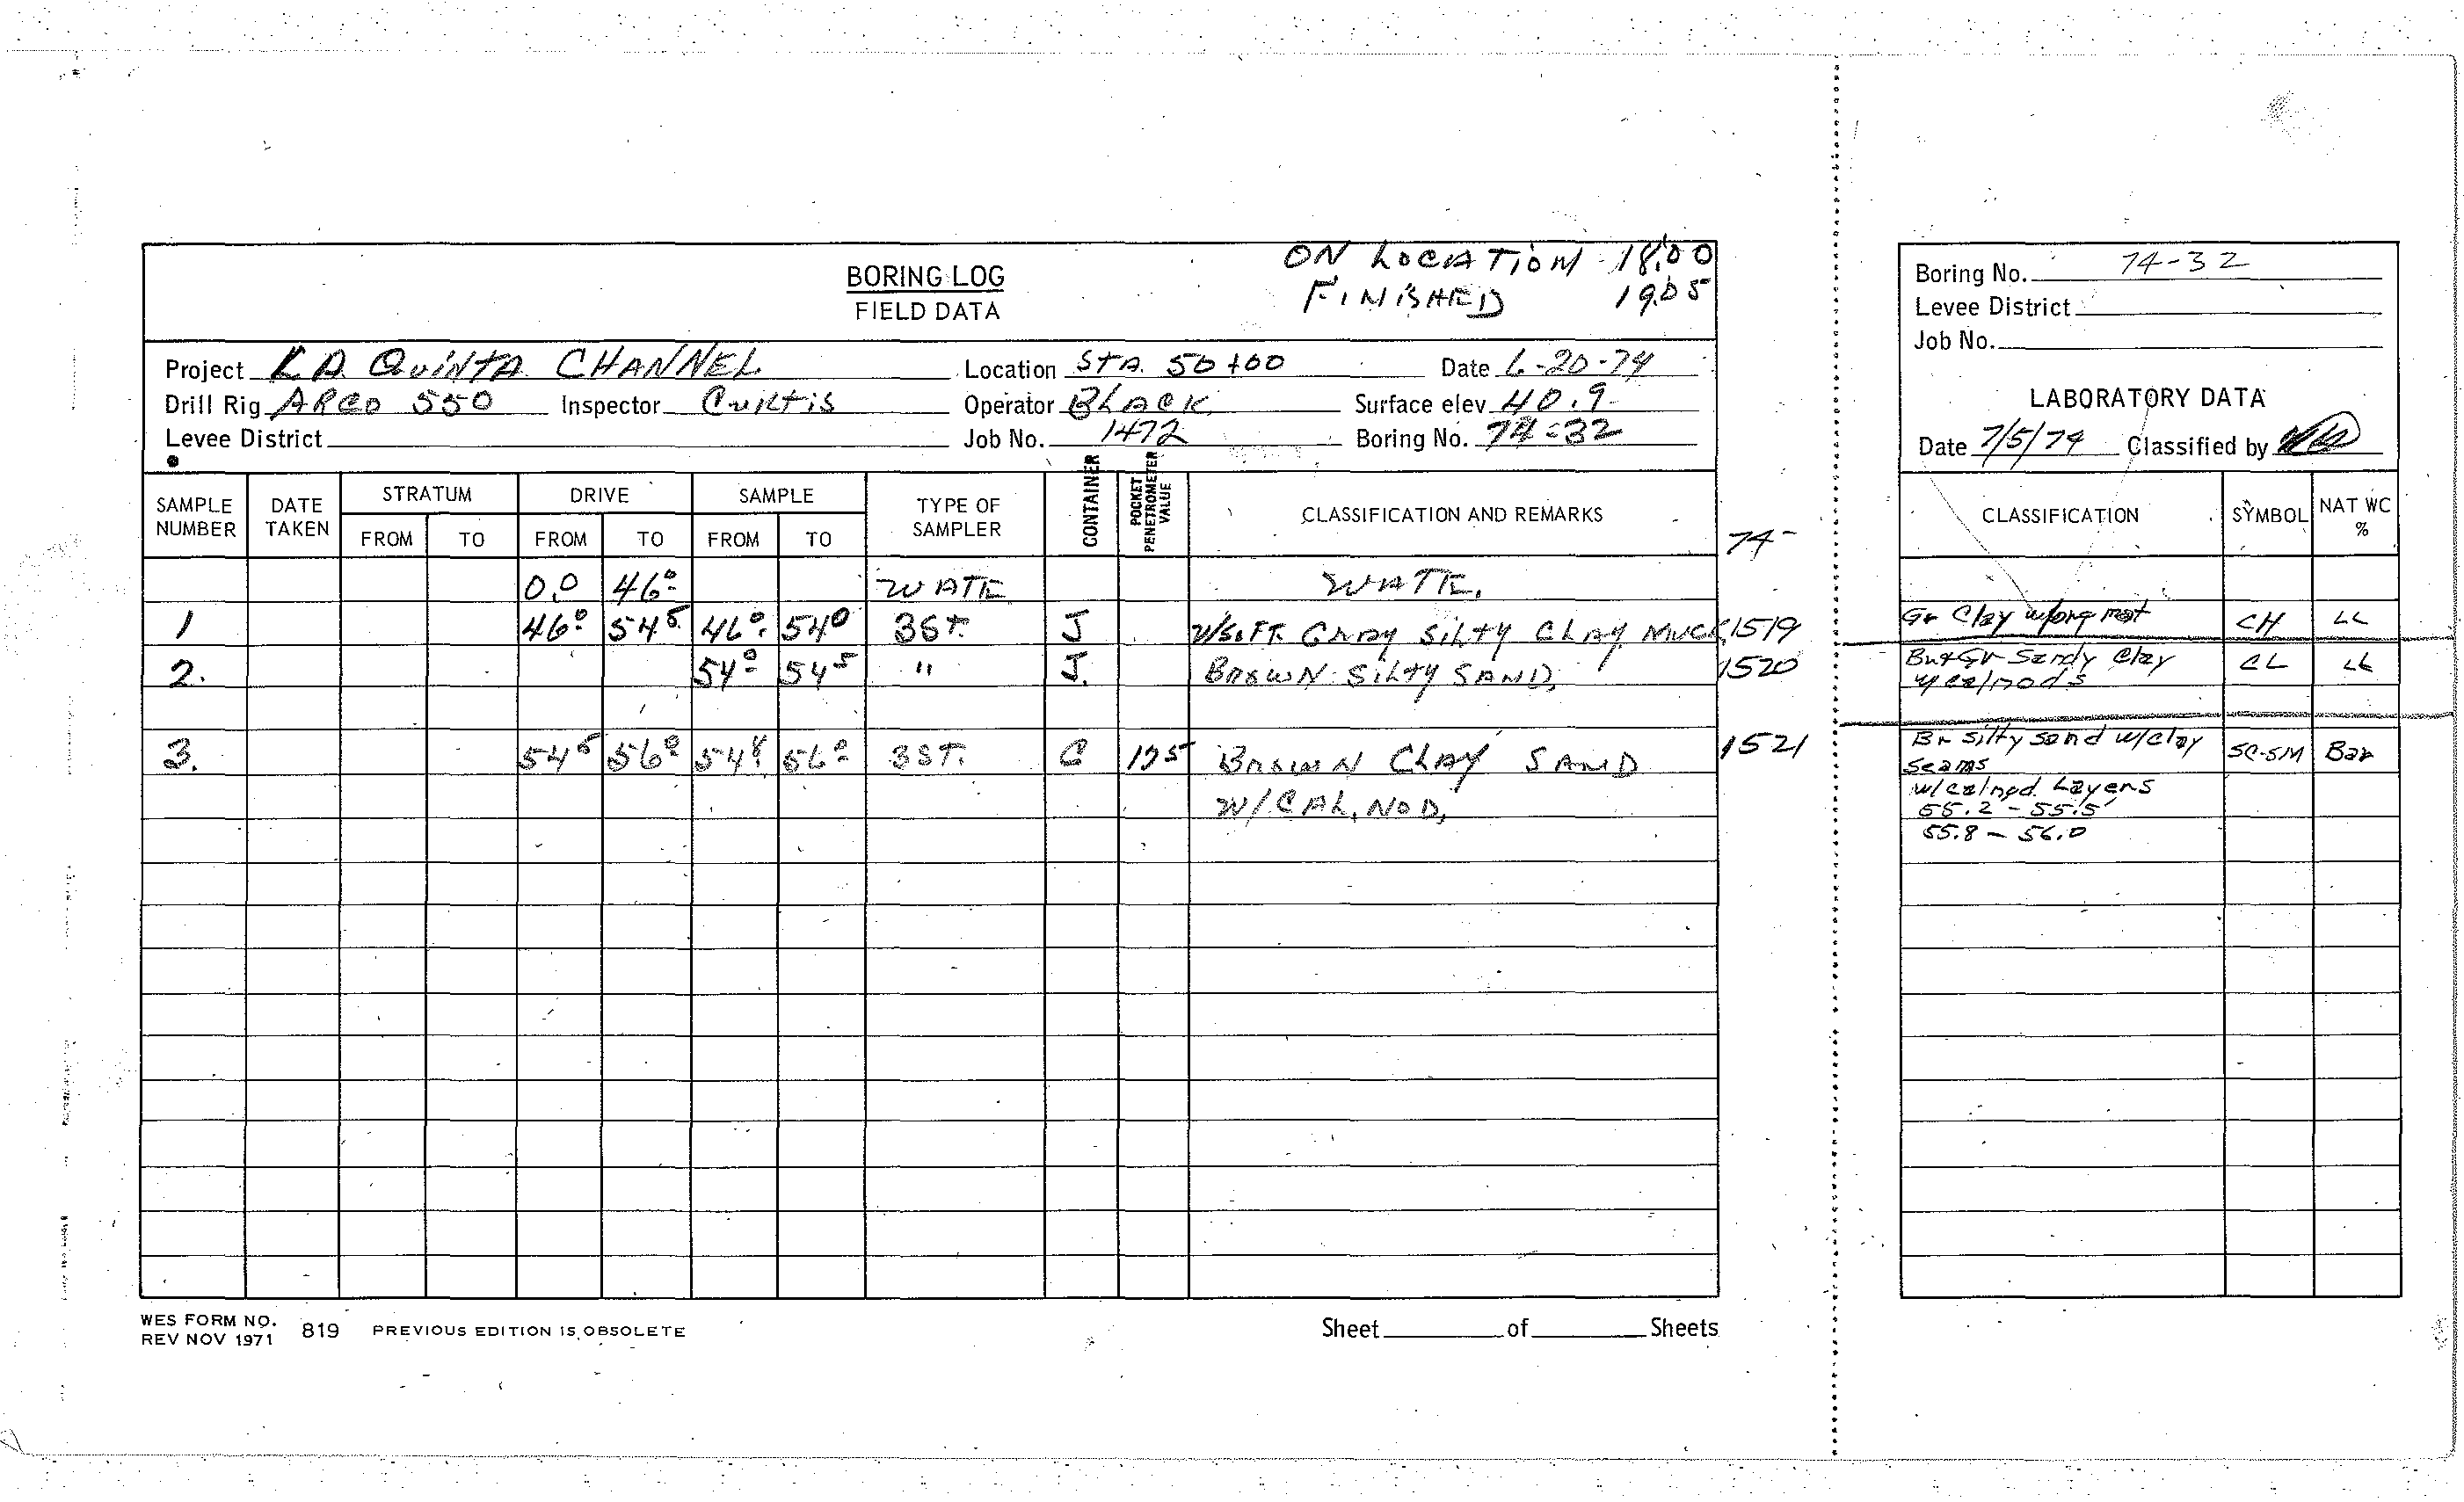 ON LOCATION 18:00
BORING LOG
FINISHED 19:05
FIELD DATA
Project LA QUINTA CHANNEL Location STA. 50+00 Date 6-20-74
Drill Rig ARCO 550 Inspector CURTIS Operator BLACK Surface elev 40.9
Levee District Job No. 1472 Boring No. 74-32
SAMPLE NUMBER DATE TAKEN STRATUM FROM TO DRIVE FROM TO SAMPLE FROM TO TYPE OF SAMPLER CONTAINER POCKET PENETROMETER VALUE CLASSIFICATION AND REMARKS
74-
0.0 46.0 WATE WATE.
1 46.0 54.5 46.0 54.0 3ST. J V/SOFT GRAY SILTY CLAY MUCK 1519
2. 54.0 54.5 " J. BROWN SILTY SAND, 1520
3. 54.5 56.0 54.8 56.0 3ST. C 175 BROWN CLAY SAND 1521
W/CAL, NOD,
WES FORM NO. 819 PREVIOUS EDITION IS OBSOLETE
REV NOV 1971
Sheet of Sheets
Boring No. 74-32
Levee District
Job No.
LABORATORY DATA
Date 7/5/74 Classified by
CLASSIFICATION SYMBOL NAT WC %
Gr Clay w/org mat CH LL
Br+Gr Sandy Clay CL LL
w/calnods
Br silty sand w/clay SC-SM Bar
seams
w/calnod. Layers
55.2 - 55.5'
55.8 - 56.0